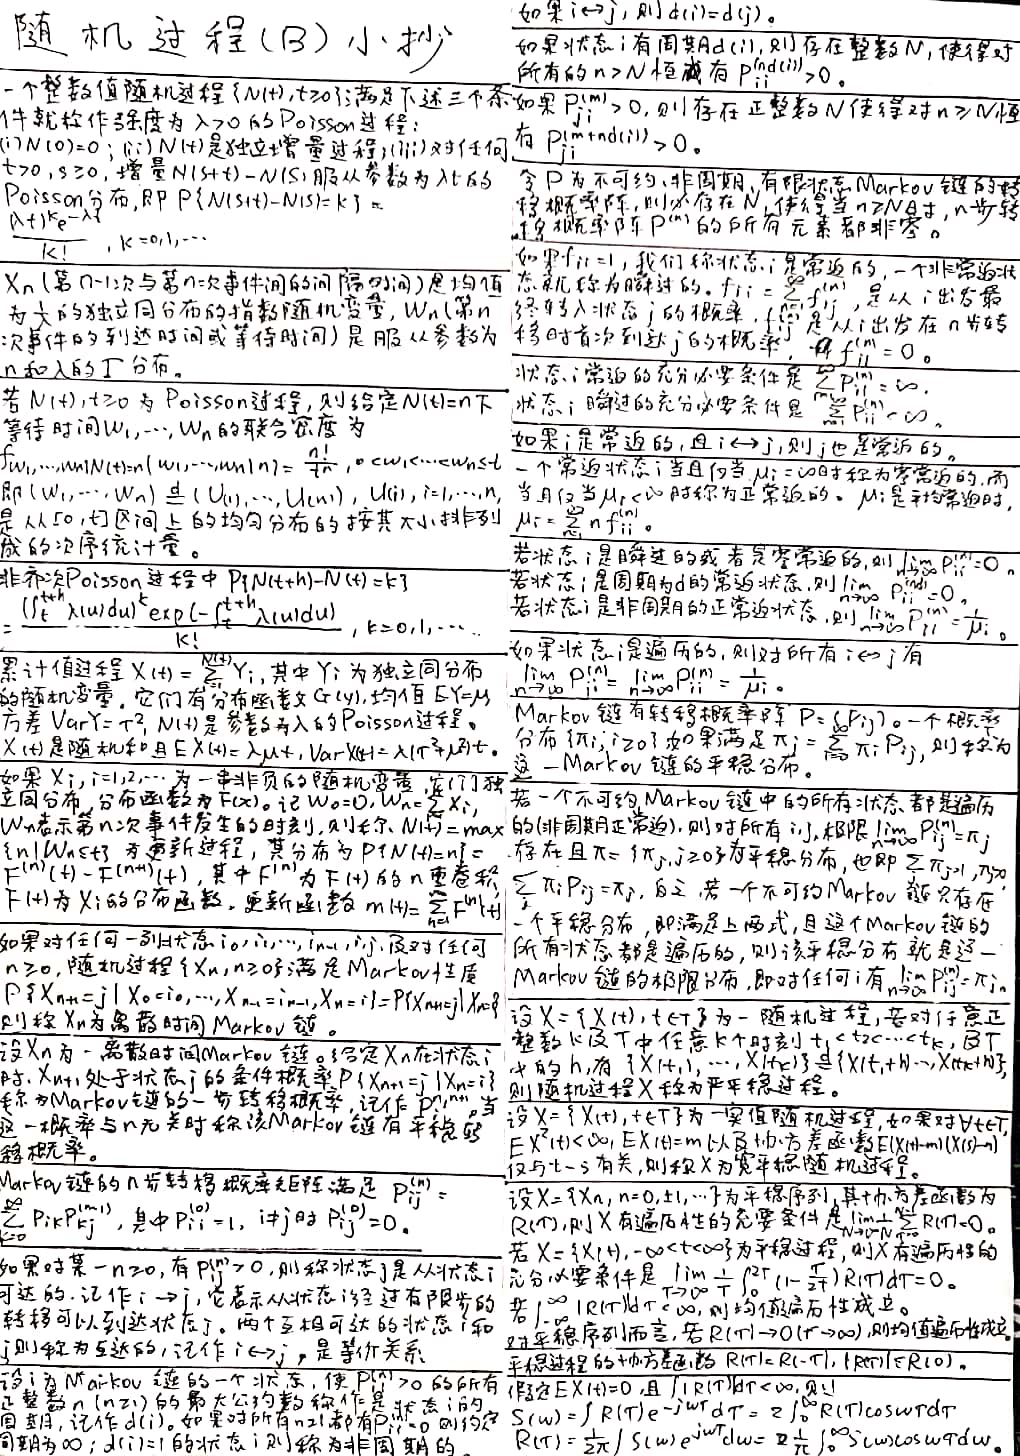 随机过程(B)小抄
一个整数值随机过程{N(t),t≥0}满足下述三个条
件就称作强度为λ>0的Poisson过程:
(i)N(0)=0;(ii)N(t)是独立增量过程;(iii)对任何
t>0,s≥0,增量N(s+t)-N(s)服从参数为λt的
Poisson分布,即P{N(s+t)-N(s)=k}=
(λt)^k e^{-λt}/k! ,k=0,1,…
Xn(第n-1次与第n次事件间的间隔时间)是均值
为1/λ的独立同分布的指数随机变量,Wn(第n
次事件的到达时间或等待时间)是服从参数为
n和λ的Γ分布。
若N(t),t≥0为Poisson过程,则给定N(t)=n下
等待时间W1,…,Wn的联合密度为
f_{W1,…,Wn|N(t)=n}(w1,…,wn|n)=n!/t^n,0<w1<…<wn≤t
即(W1,…,Wn)≜(U(1),…,U(n)),U(i),i=1,…,n,
是从[0,t]区间上的均匀分布的按其大小排列
成的次序统计量。
非齐次Poisson过程中P{N(t+h)-N(t)=k}
=(∫_t^{t+h}λ(u)du)^k exp(-∫_t^{t+h}λ(u)du)/k! ,k=0,1,…
累计值过程X(t)=Σ_{i=1}^{N(t)}Yi,其中Yi为独立同分布
的随机变量。它们有分布函数G(y),均值EY=μ
方差VarY=τ²,N(t)是参数为λ的Poisson过程。
X(t)是随机和且EX(t)=λμt,VarX(t)=λ(τ²+μ²)t。
如果Xi,i=1,2,…为一串非负的随机变量,它们独
立同分布,分布函数为F(x)。记W0=0,Wn=ΣXi,
Wn表示第n次事件发生的时刻,则称N(t)=max
{n|Wn≤t}为更新过程,其分布为P{N(t)=n}=
F^{(n)}(t)-F^{(n+1)}(t),其中F^{(n)}为F(t)的n重卷积,
F(t)为Xi的分布函数。更新函数m(t)=Σ_{n=1}^∞F^{(n)}(t)
如果对任何一列状态i0,i1,…,i_{n-1},i,j,及对任何
n≥0,随机过程{Xn,n≥0}满足Markov性质
P{X_{n+1}=j|X0=i0,…,X_{n-1}=i_{n-1},Xn=i}=P{X_{n+1}=j|Xn=i}
则称Xn为离散时间Markov链。
设Xn为一离散时间Markov链。给定Xn在状态i
时,X_{n+1}处于状态j的条件概率P{X_{n+1}=j|Xn=i}
称为Markov链的一步转移概率,记作P_{ij}^{n,n+1}。当
这一概率与n无关时称该Markov链有平稳转
移概率。
Markov链的n步转移概率矩阵满足P_{ij}^{(n)}=
Σ_{k=0}^∞P_{ik}P_{kj}^{(n-1)},其中P_{ii}^{(0)}=1,i≠j时P_{ij}^{(0)}=0。
如果对某一n≥0,有P_{ij}^{(n)}>0,则称状态j是从状态i
可达的,记作i→j,它表示从状态i经过有限步的
转移可以到达状态j。两个互相可达的状态i和
j则称为互达的,记作i↔j,是等价关系
设i为Markov链的一个状态,使P_{ii}^{(n)}>0的所有
正整数n(n≥1)的最大公约数称作是状态i的
周期,记作d(i)。如果对所有n≥1都有P_{ii}^{(n)}=0则约定
周期为∞;d(i)=1的状态i则称为非周期的。
如果i↔j,则d(i)=d(j)。
如果状态i有周期d(i),则存在整数N,使得对
所有的n>N恒有P_{ii}^{(nd(i))}>0。
如果P_{ji}^{(m)}>0,则存在正整数N使得对n≥N恒
有P_{ji}^{(m+nd(i))}>0。
令P为不可约、非周期、有限状态Markov链的转
移概率阵,则必存在N,使得当n≥N时,n步转
移概率阵P^{(n)}的所有元素都非零。
如果f_{ii}=1,我们称状态i是常返的,一个非常返状
态就称为瞬过的。f_{ij}=Σf_{ij}^{(n)},是从i出发最
终转入状态j的概率,f_{ij}^{(n)}是从i出发在n步转
移时首次到达j的概率,f_{ii}^{(0)}=0。
状态i常返的充分必要条件是Σ_{n=1}^∞P_{ii}^{(n)}=∞。
状态i瞬过的充分必要条件是Σ_{n=1}^∞P_{ii}^{(n)}<∞。
如果i是常返的,且i↔j,则j也是常返的。
一个常返状态i当且仅当μi=∞时称为零常返的,而
当且仅当μi<∞时称为正常返的。μi是平均常返时,
μi=Σ_{n=1}^∞nf_{ii}^{(n)}。
若状态i是瞬过的或者是零常返的,则lim_{n→∞}P_{ii}^{(n)}=0。
若状态i是周期为d的常返状态,则lim_{n→∞}P_{ii}^{(nd)}=0。
若状态i是非周期的正常返状态,则lim_{n→∞}P_{ii}^{(n)}=1/μi。
如果状态i是遍历的,则对所有i↔j有
lim_{n→∞}P_{ji}^{(n)}=lim_{n→∞}P_{ii}^{(n)}=1/μi。
Markov链有转移概率阵P=(P_{ij})。一个概率
分布{πi,i≥0}如果满足πj=Σ_{i=0}^∞πiP_{ij},则称为
这一Markov链的平稳分布。
若一个不可约Markov链中的所有状态都是遍历
的(非周期正常返),则对所有i,j,极限lim_{n→∞}P_{ij}^{(n)}=πj
存在且π={πj,j≥0}为平稳分布,也即Σπj=1,πj>0,
ΣπiP_{ij}=πj,反之,若一个不可约Markov链只存在
一个平稳分布,即满足上两式,且这个Markov链的
所有状态都是遍历的,则该平稳分布就是这一
Markov链的极限分布,即对任何i有lim_{n→∞}P_{ij}^{(n)}=πj。
设X={X(t),t∈T}为一随机过程,若对任意正
整数k及T中任意k个时刻t1<t2<…<tk,及T
中的h,有{X(t1),…,X(tk)}≜{X(t1+h),…,X(tk+h)},
则随机过程X称为严平稳过程。
设X={X(t),t∈T}为一实值随机过程,如果对∀t∈T,
EX²(t)<∞,EX(t)=m以及协方差函数E(X(t)-m)(X(s)-m)
仅与t-s有关,则称X为宽平稳随机过程。
设X={Xn,n=0,±1,…}为平稳序列,其协方差函数为
R(τ),则X有遍历性的充要条件是lim_{N→∞}1/N Σ_{τ=0}^{N-1}R(τ)=0。
若X={X(t),-∞<t<∞}为平稳过程,则X有遍历性的
充分必要条件是lim_{T→∞}1/T∫_0^{2T}(1-τ/2T)R(τ)dτ=0。
若∫_{-∞}^∞|R(τ)|dτ<∞,则均值遍历性成立。
对平稳序列而言,若R(τ)→0(τ→∞),则均值遍历性成立。
平稳过程的协方差函数R(τ)=R(-τ),|R(τ)|≤R(0)。
假定EX(t)=0,且∫|R(τ)|dτ<∞,则
S(ω)=∫R(τ)e^{-jωτ}dτ=2∫_0^∞R(τ)cosωτdτ
R(τ)=1/2π∫S(ω)e^{jωτ}dω=1/π∫_0^∞S(ω)cosωτdω。